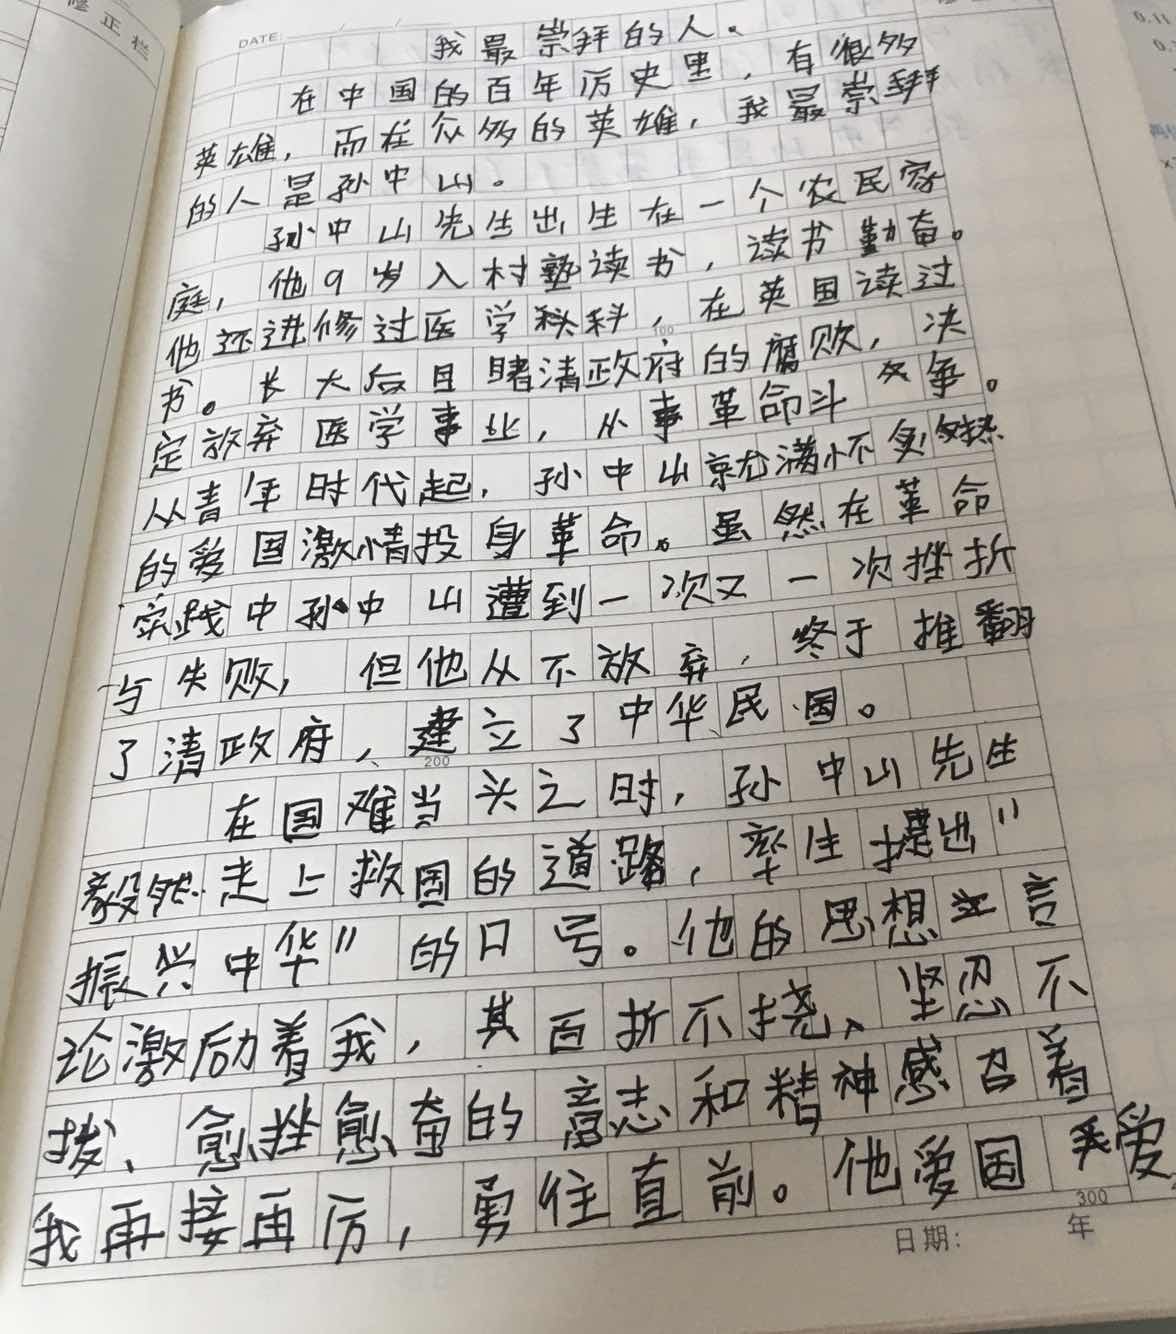 修正栏
DATE:
我最崇拜的人。
在中国的百年历史里，有很多
英雄，而在众多的英雄，我最崇拜
的人是孙中山。
孙中山先生出生在一个农民家
庭，他9岁入村塾读书，读书勤奋。
他还进修过医学秘科，在英国读过
100
书。长大后目睹清政府的腐败，决
定放弃医学事业，从事革命斗争。
从青年时代起，孙中山就满怀
的爱国激情投身革命。虽然在革命
实践中孙中山遭到一次又一次挫折
与失败，但他从不放弃，终于推翻
了清政府、建立了中华民国。
200
在国难当头之时，孙中山先生
毅然走上救国的道路，率先提出"
振兴中华"的口号。他的思想言
论激励着我，其百折不挠、坚忍不
拨、愈挫愈奋的意志和精神感召着
我再接再厉，勇往直前。他爱国爱
300
日期: 年